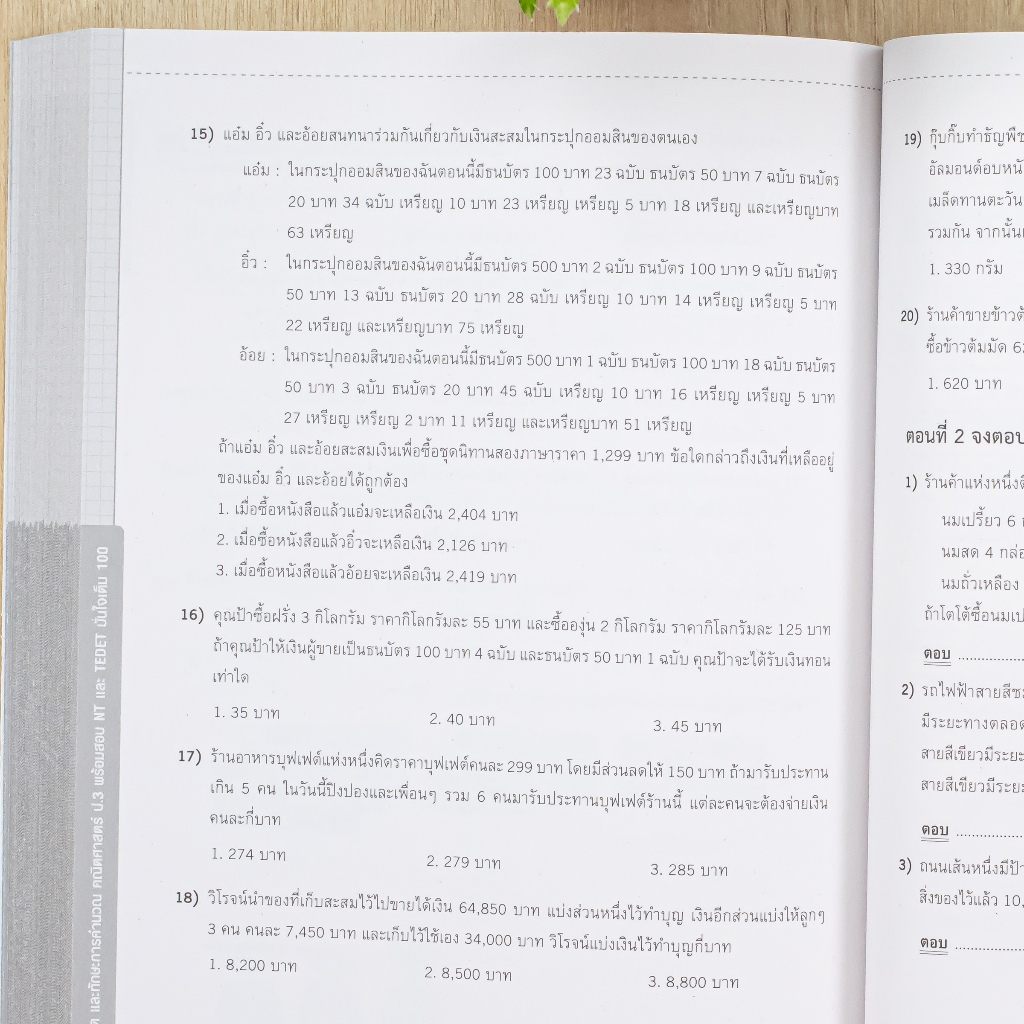 15) แอ๋ม อิ๋ว และอ้อยสนทนาร่วมกันเกี่ยวกับเงินสะสมในกระปุกออมสินของตนเอง
แอ๋ม : ในกระปุกออมสินของฉันตอนนี้มีธนบัตร 100 บาท 23 ฉบับ ธนบัตร 50 บาท 7 ฉบับ ธนบัตร
20 บาท 34 ฉบับ เหรียญ 10 บาท 23 เหรียญ เหรียญ 5 บาท 18 เหรียญ และเหรียญบาท
63 เหรียญ
อิ๋ว : ในกระปุกออมสินของฉันตอนนี้มีธนบัตร 500 บาท 2 ฉบับ ธนบัตร 100 บาท 9 ฉบับ ธนบัตร
50 บาท 13 ฉบับ ธนบัตร 20 บาท 28 ฉบับ เหรียญ 10 บาท 14 เหรียญ เหรียญ 5 บาท
22 เหรียญ และเหรียญบาท 75 เหรียญ
อ้อย : ในกระปุกออมสินของฉันตอนนี้มีธนบัตร 500 บาท 1 ฉบับ ธนบัตร 100 บาท 18 ฉบับ ธนบัตร
50 บาท 3 ฉบับ ธนบัตร 20 บาท 45 ฉบับ เหรียญ 10 บาท 16 เหรียญ เหรียญ 5 บาท
27 เหรียญ เหรียญ 2 บาท 11 เหรียญ และเหรียญบาท 51 เหรียญ
ถ้าแอ๋ม อิ๋ว และอ้อยสะสมเงินเพื่อซื้อชุดนิทานสองภาษาราคา 1,299 บาท ข้อใดกล่าวถึงเงินที่เหลืออยู่
ของแอ๋ม อิ๋ว และอ้อยได้ถูกต้อง
1. เมื่อซื้อหนังสือแล้วแอ๋มจะเหลือเงิน 2,404 บาท
2. เมื่อซื้อหนังสือแล้วอิ๋วจะเหลือเงิน 2,126 บาท
3. เมื่อซื้อหนังสือแล้วอ้อยจะเหลือเงิน 2,419 บาท
16) คุณป้าซื้อฝรั่ง 3 กิโลกรัม ราคากิโลกรัมละ 55 บาท และซื้อองุ่น 2 กิโลกรัม ราคากิโลกรัมละ 125 บาท
ถ้าคุณป้าให้เงินผู้ขายเป็นธนบัตร 100 บาท 4 ฉบับ และธนบัตร 50 บาท 1 ฉบับ คุณป้าจะได้รับเงินทอน
เท่าใด
1. 35 บาท 2. 40 บาท 3. 45 บาท
17) ร้านอาหารบุฟเฟต์แห่งหนึ่งคิดราคาบุฟเฟต์คนละ 299 บาท โดยมีส่วนลดให้ 150 บาท ถ้ามารับประทาน
เกิน 5 คน ในวันนี้ปิงปองและเพื่อนๆ รวม 6 คนมารับประทานบุฟเฟต์ร้านนี้ แต่ละคนจะต้องจ่ายเงิน
คนละกี่บาท
1. 274 บาท 2. 279 บาท 3. 285 บาท
18) วิโรจน์นำของที่เก็บสะสมไว้ไปขายได้เงิน 64,850 บาท แบ่งส่วนหนึ่งไว้ทำบุญ เงินอีกส่วนแบ่งให้ลูกๆ
3 คน คนละ 7,450 บาท และเก็บไว้ใช้เอง 34,000 บาท วิโรจน์แบ่งเงินไว้ทำบุญกี่บาท
1. 8,200 บาท 2. 8,500 บาท 3. 8,800 บาท
และทักษะการคำนวณ คณิตศาสตร์ ป.3 พร้อมสอบ NT และ TEDET มั่นใจเต็ม 100
19) กุ๊บกิ๊บทำธัญพืช
อัลมอนด์อบหนัก
เมล็ดทานตะวัน
รวมกัน จากนั้น
1. 330 กรัม
20) ร้านค้าขายข้าวต้
ซื้อข้าวต้มมัด
1. 620 บาท
ตอนที่ 2 จงตอบ
1) ร้านค้าแห่งหนึ่ง
นมเปรี้ยว 6
นมสด 4 กล่อ
นมถั่วเหลือง
ถ้าโตโต้ซื้อนมเป
ตอบ
2) รถไฟฟ้าสายสีช
มีระยะทางตลอด
สายสีเขียวมีระยะ
สายสีเขียวมีระยะ
ตอบ
3) ถนนเส้นหนึ่งมีป้า
สิ่งของไว้แล้ว 10,
ตอบ